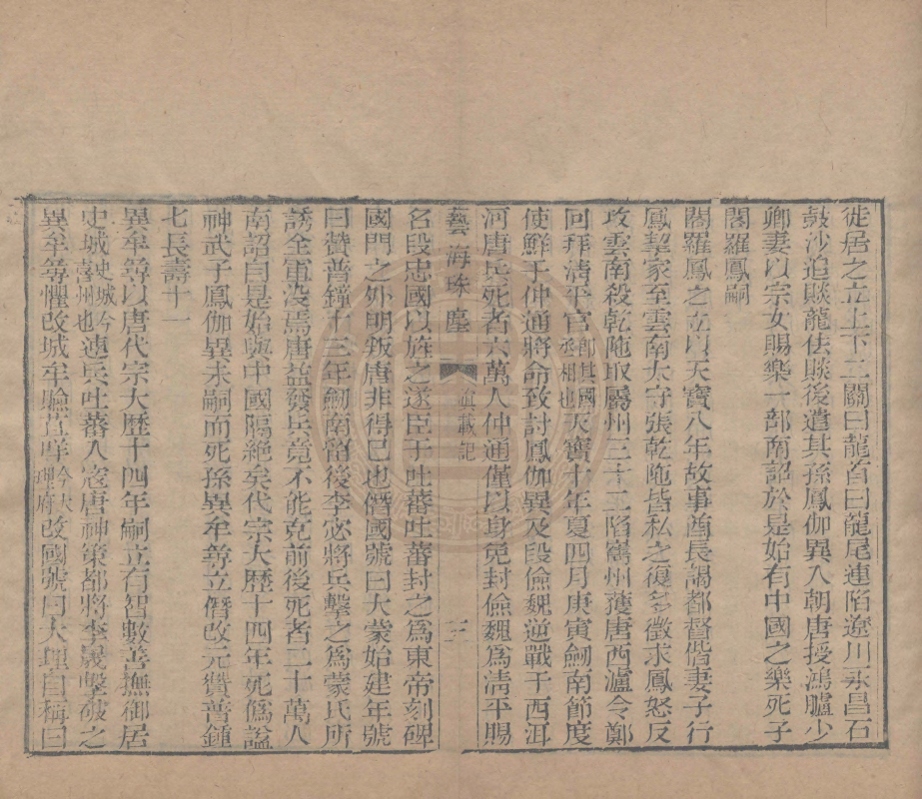 徙居之立上下二關曰龍首曰龍尾連陷遼川永昌石
鼓沙追賧龍佉賧後遣其孫鳳伽異入朝唐授鴻臚少
卿妻以宗女賜樂一部南詔於是始有中國之樂死子
閣羅鳳嗣
閣羅鳳之立以天寶八年故事酋長謁都督偕妻子行
鳳挈家至雲南太守張乾陁皆私之復多徵求鳳怒反
攻雲南殺乾陁取屬州三十二陷巂州獲唐西瀘令鄭
回拜清平官即其國丞相也天寶十年夏四月庚寅劒南節度
使鮮于仲通將命致討鳳伽異及段儉魏逆戰于西洱
河唐兵死者六萬人仲通僅以身免封儉魏爲清平賜
藝海珠塵 滇載記 三
名段忠國以旌之遂臣于吐蕃吐蕃封之爲東帝刻碑
國門之外明叛唐非得已也僭國號曰大蒙始建年號
曰贊普鍾十三年劒南留後李宓將兵擊之爲蒙氏所
誘全軍没焉唐益發兵竟不能克前後死者二十萬人
南詔自是始與中國隔絶矣代宗大歷十四年死僞諡
神武子鳳伽異未嗣而死孫異牟尋立僭改元贊普鍾
七長壽十一
異牟尋以唐代宗大歷十四年嗣立有智數善撫御居
史城史城今喜州也連兵吐蕃入寇唐神策都將李晟擊破之
異牟尋懼改城羊苴咩今大理府改國號曰大理自稱曰